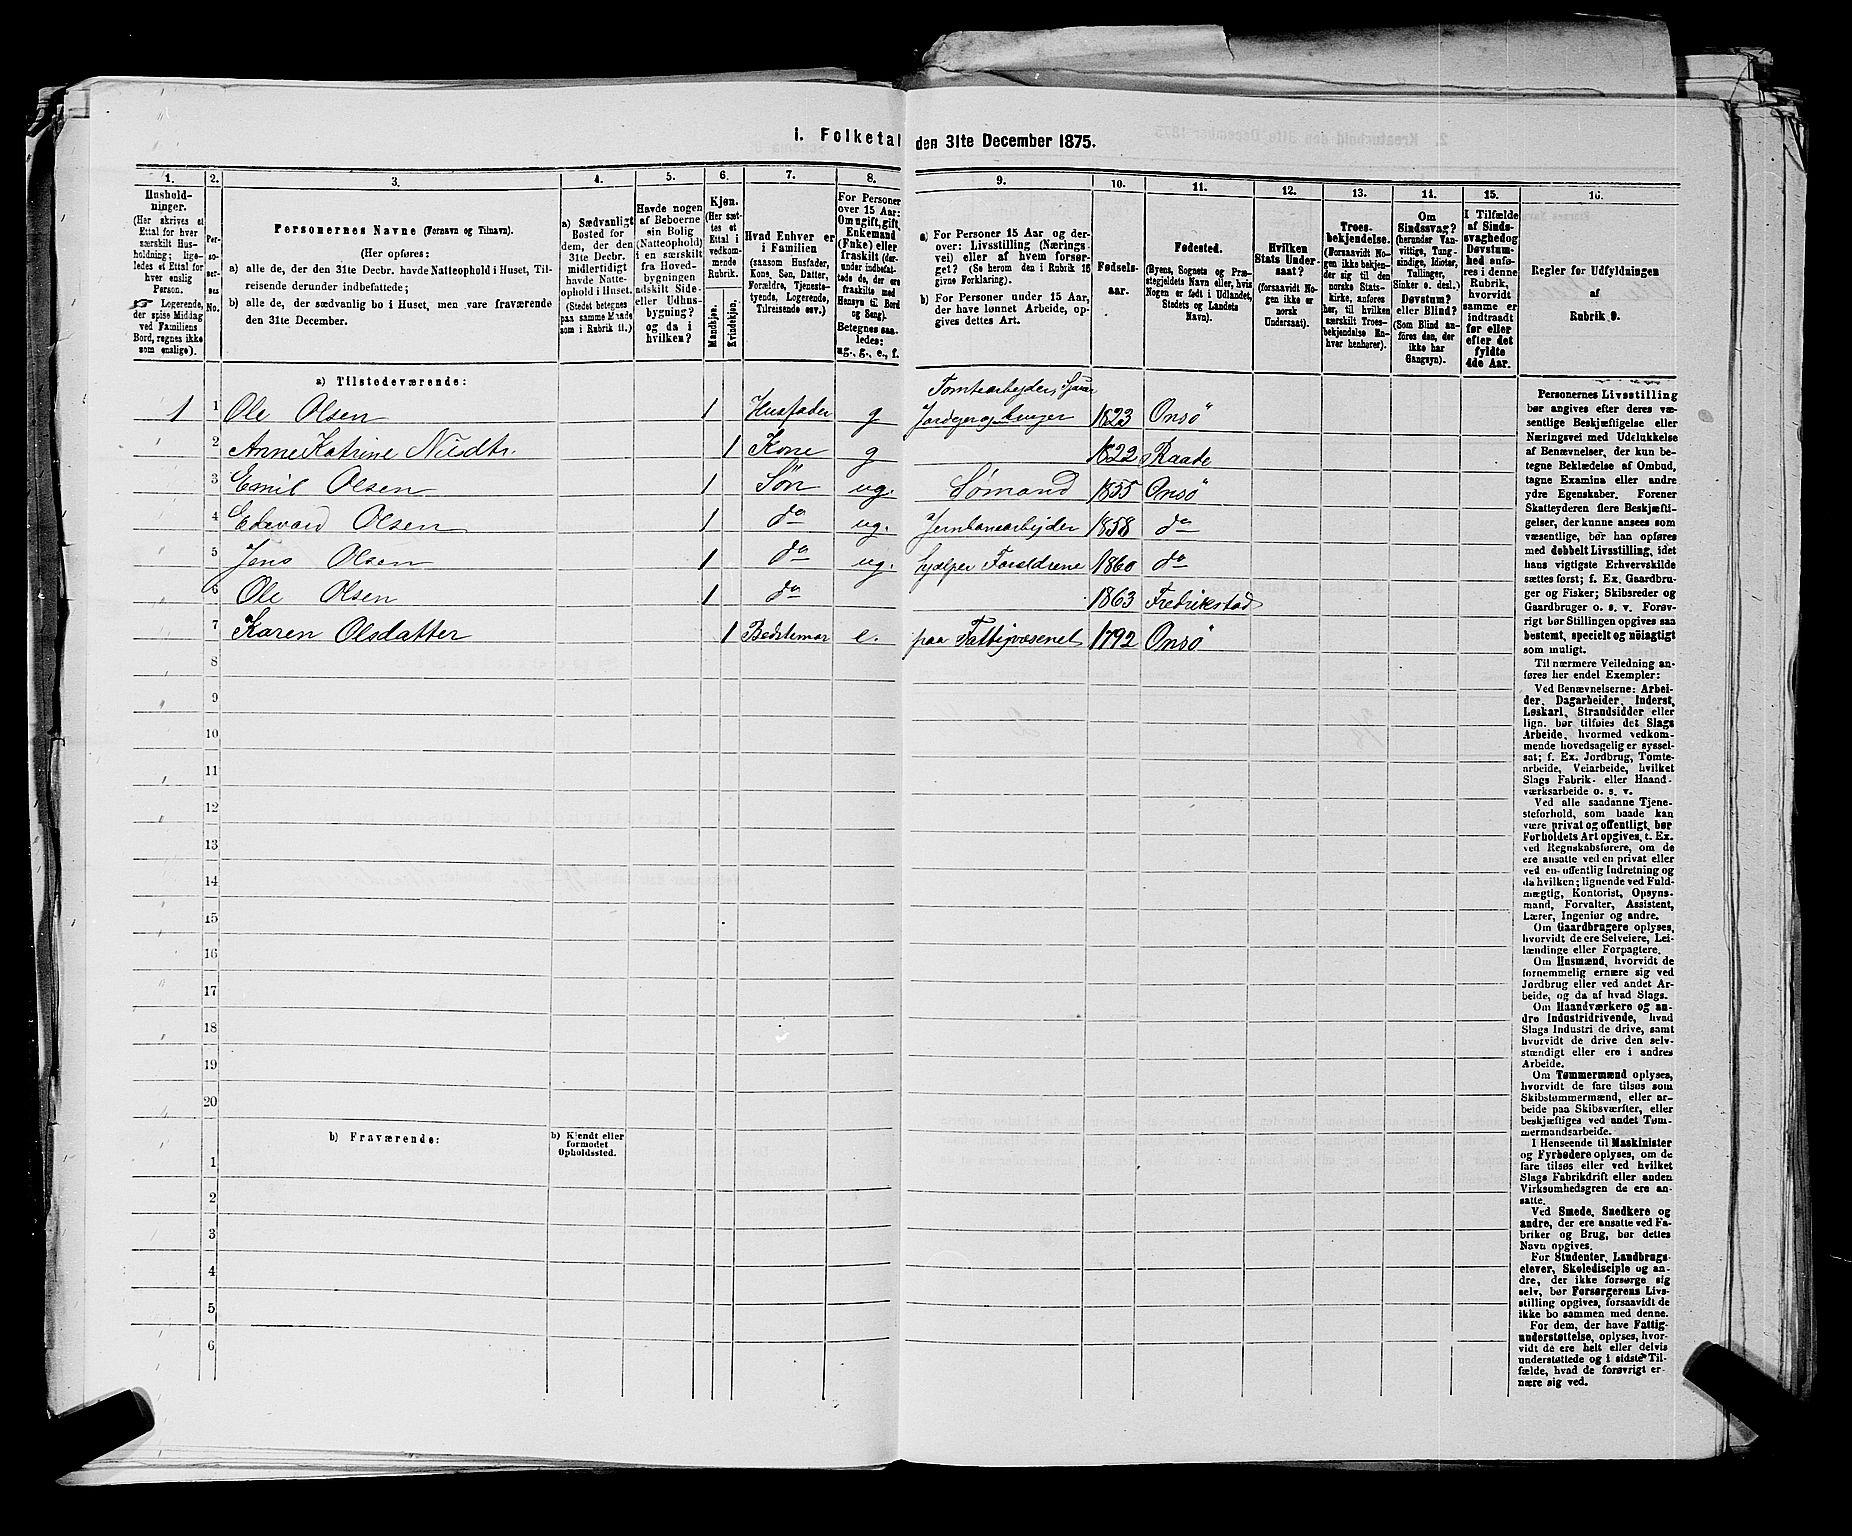 1. Folketal den 31te December 1875.
1. 2. 3. 4. 5. 6. 7. 8. 9. 10. 11. 12. 13. 14. 15. 16.
Hushold-
ninger.
(Her skrives et
Ettal for hver
særskilt Hus-
holdning; lige-
ledes et Ettal for
hver enslig
Person.
☞ Logerende,
der spise Middag
ved Familiens
Bord, regnes ikke
som enslige).
Per-
so-
ner-
nes
No.
Personernes Navne (Fornavn og Tilnavn).
(Her opføres:
a) alle de, der den 31te Decbr. havde Natteophold i Huset, Til-
reisende derunder indbefattede;
b) alle de, der sædvanlig bo i Huset, men vare fraværende
den 31te December.
a) Sædvanligt
Bosted for
dem, der den
31te Decbr.
midlertidigt
havde Natte-
ophold i Huset.
(Stedet betegnes
paa samme Maade
som i Rubrik 11.)
Havde nogen
af Beboerne
sin Bolig
(Natteophold)
i en særskilt
fra Hoved-
bygningen
adskilt Side-
eller Udhus-
bygning?
og da i
hvilken?
Kjøn.
(Her sæt-
tes et
Ettal i
vedkom-
mende
Rubrik.
Mandkjøn.
Kvindekjøn.
Hvad Enhver er
i Familien
(saasom Husfader,
Kone, Søn, Datter,
Forældre, Tjeneste-
tyende, Logerende,
Tilreisende osv.)
For Personer
over 15 Aar:
Om ugift, gift,
Enkemand
(Enke) eller
fraskilt (der-
under indbefat-
tede de, der ere
fraskilte med
Hensyn til Bord
og Seng).
Betegnes saa-
ledes:
ug., g., e., f.
a) For Personer 15 Aar og der-
over: Livsstilling (Nærings-
vei) eller af hvem forsør-
get? (Se herom den i Rubrik 16
givne Forklaring).
b) For Personer under 15 Aar,
der have lønnet Arbeide, op-
gives dettes Art.
Fødsels-
aar.
Fødested.
(Byens, Sognets og Præ-
stegjeldets Navn eller, hvis
Nogen er født i Udlandet,
Stedets og Landets
Navn).
Hvilken
Stats Under-
saat?
(forsaavidt No-
gen ikke er
norsk
Undersaat).
Troes-
bekjendelse.
(Forsaavidt No-
gen ikke bekjen-
der sig til den
norske Stats-
kirke, anføres
her, til hvilken
særskilt Troes-
bekjendelse En-
hver henhører).
Om
Sindssvag?
(herunder Van-
vittige, Tung-
sindige, Idioter,
Tullinger,
Sinker o. desl.)
Døvstum?
eller Blind?
(Som Blind an-
føres den, der
ikke har
Gangsyn).
I Tilfælde
af Sinds-
svaghed og
Døvstum-
hed anfø-
res i denne
Rubrik,
hvorvidt
samme er
indtraadt
før eller
efter det
fyldte
4de Aar.
Regler for Udfyldningen
af
Rubrik 9.
a) Tilstedeværende:
Tomtearbeyder,
1 1 Ole Olsen 1 Husfader g 1823 Onsö
2 Anne Katrine 1 Kone g 1822 Raade
3 Emil Olsen 1 Sön ug. Sømand 1855 Onsö
4 Edevard Olsen 1 do ug. Jernbanearbejder 1858 do
5 Jens Olsen 1 do ug. hjælper Forældrene 1860 do
6 Ole Olsen 1 do 1863 Fredrikstad
7 Karen Olsdatter 1 Bedstemor e. paa Fattigvæsenet 1792 Onsö
8
9
10
11
12
13
14
15
16
17
18
19
20
b) Fraværende:
b) Kjendt eller
formodet
Opholdssted.
1
2
3
4
5
6
Personernes Livsstilling
bør angives efter deres væ-
sentlige Beskjæftigelse eller
Næringsvei med Udelukkelse
af Benævnelser, der kun be-
tegne Beklædelse af Ombud,
tagne Examina eller andre
ydre Egenskaber. Forener
Skatteyderen flere Beskjæfti-
gelser, der kunne ansees som
væsentlige, bør han opføres
med dobbelt Livsstilling, idet
hans vigtigste Erhvervskilde
sættes først; f. Ex. Gaardbru-
ger og Fisker; Skibsreder og
Gaardbruger o. s. v. Forøv-
rigt bør Stillingen opgives saa
bestemt, specielt og nöiagtigt
som muligt.
Til nærmere Veiledning an-
føres her endel Exempler:
Ved Benævnelserne: Arbei-
der, Dagarbeider, Inderst,
Løskarl, Strandsidder eller
lign. bør tilføies det Slags
Arbeide, hvormed vedkom-
mende hovedsagelig er syssel-
sat; f. Ex. Jordbrug, Tomte-
arbeide, Veiarbeide, hvilket
Slags Fabrik- eller Haand-
værksarbeide o. s. v.
Ved alle saadanne Tjene-
steforhold, som baade kan
være privat og offentligt, bør
Forholdets Art opgives, t. Ex.
ved Regnskabsførere, om de
ere ansatte ved en privat eller
ved en offentlig Indretning og
da hvilken; lignende ved Fuld-
mægtig, Kontorist, Opsyns-
mand, Forvalter, Assistent,
Lærer, Ingeniør og andre.
Om Gaardbrugere oplyses,
hvorvidt de ere Selveiere, Lei-
lændinge eller Forpagtere.
Om Husmænd, hvorvidt de
fornemmelig ernære sig ved
Jordbrug eller ved andet Ar-
beide, og da af hvad Slags.
Om Haandværkere og an-
dre Industridrivende, hvad
Slags Industri de drive, samt
hvorvidt de drive den selv-
stændigt eller ere i andres
Arbeide.
Om Tømmermænd oplyses,
hvorvidt de fare tilsøs som
Skibstømmermænd, eller ar-
beide paa Skibsværfter, eller
beskjæftiges ved andet Tøm-
mermandsarbeide.
I Henseende til Maskinister
og Fyrbødere oplyses, om de
fare tilsøs eller ved hvilket
Slags Fabrikdrift eller anden
Virksomhedsgren de ere an-
satte.
Ved Smede, Snedkere og
andre, der ere ansatte ved Fa-
briker og Brug, bør dettes
Navn opgives.
For Studenter, Landbrugs-
elever, Skoledisciple og an-
dre, der ikke forsørge sig
selv, bør Forsørgerens Livs-
stilling opgives, forsaavidt de
ikke bo sammen med denne.
For dem, der have Fattig-
understøttelse, oplyses, hvor-
vidt de ere helt eller delvis
understøttede og i sidste Til-
fælde, hvad de forøvrigt er-
nære sig ved.